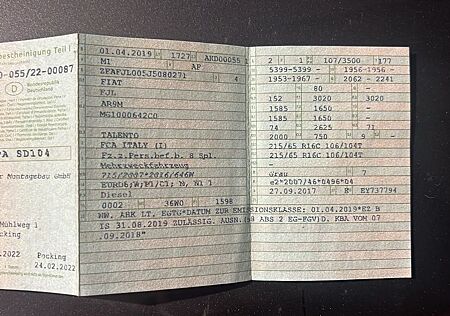 bescheinigung Teil I
0-055/22-00087
D Bundesrepublik
Deutschland
PA SD104
r Montagebau GmbH
Mühlweg 1
cking
.2022 Pocking
24.02.2022
01.04.2019 1727 AKD00055 1
M1 AF
ZFAFJL005J5080271 4
FIAT
FJL
AR9M
MG1000642C0
TALENTO
FCA ITALY (I)
Fz.z.Pers.bef.b. 8 Spl.
Mehrzweckfahrzeug
715/2007*2016/646W
EURO6;W;M1/CI; N, N1 I
Diesel
0002 36W0 1598
NW, ABK LT, EGTG*DATUM ZUR EMISSIONSKLASSE: 01.04.2019*EZ B
IS 31.08.2019 ZULÄSSIG. AUSN.(§8 ABS 2 EG-FGV)D. KBA VOM 07
.09.2018*
2 1 107/3500 177
5399-5399 - 1956-1956 -
1953-1967 - 2062 - 2241
- 80 -
152 3020 3020
1585 1650 -
1585 1650 -
74 2625 71
2000 750 9 -
215/65 R16C 106/104T
215/65 R16C 106/104T
-
Grau 7
e2*2007/46*0496*04
27.09.2017 K EY737794